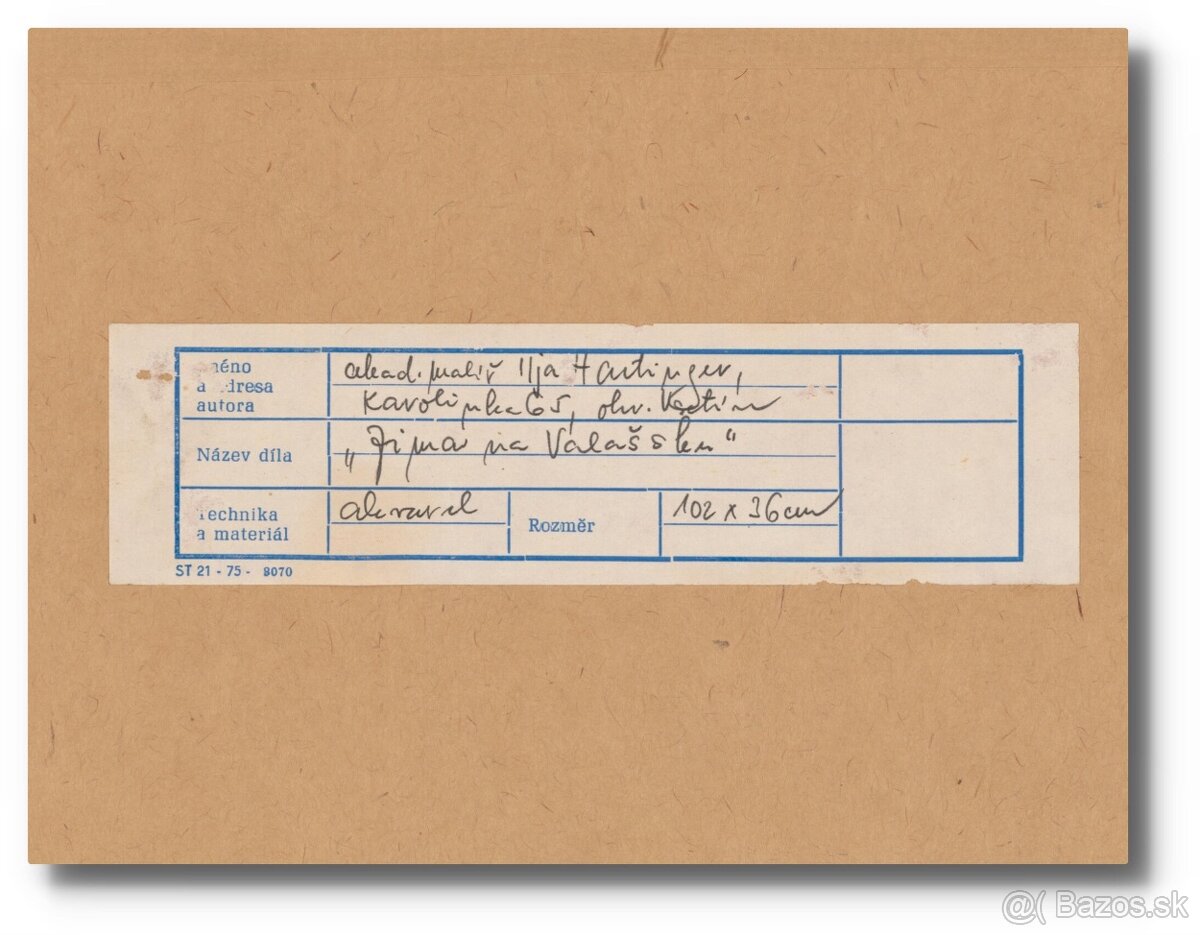 méno
a adresa
autora
akad. malíř Ilja Hartinger,
Karolinka 65, okr. Vsetín
Název díla
„Zima na Valašsku“
Technika
a materiál
akvarel
Rozměr
102 x 36 cm
ST 21 - 75 - 8070
@( Bazos.sk